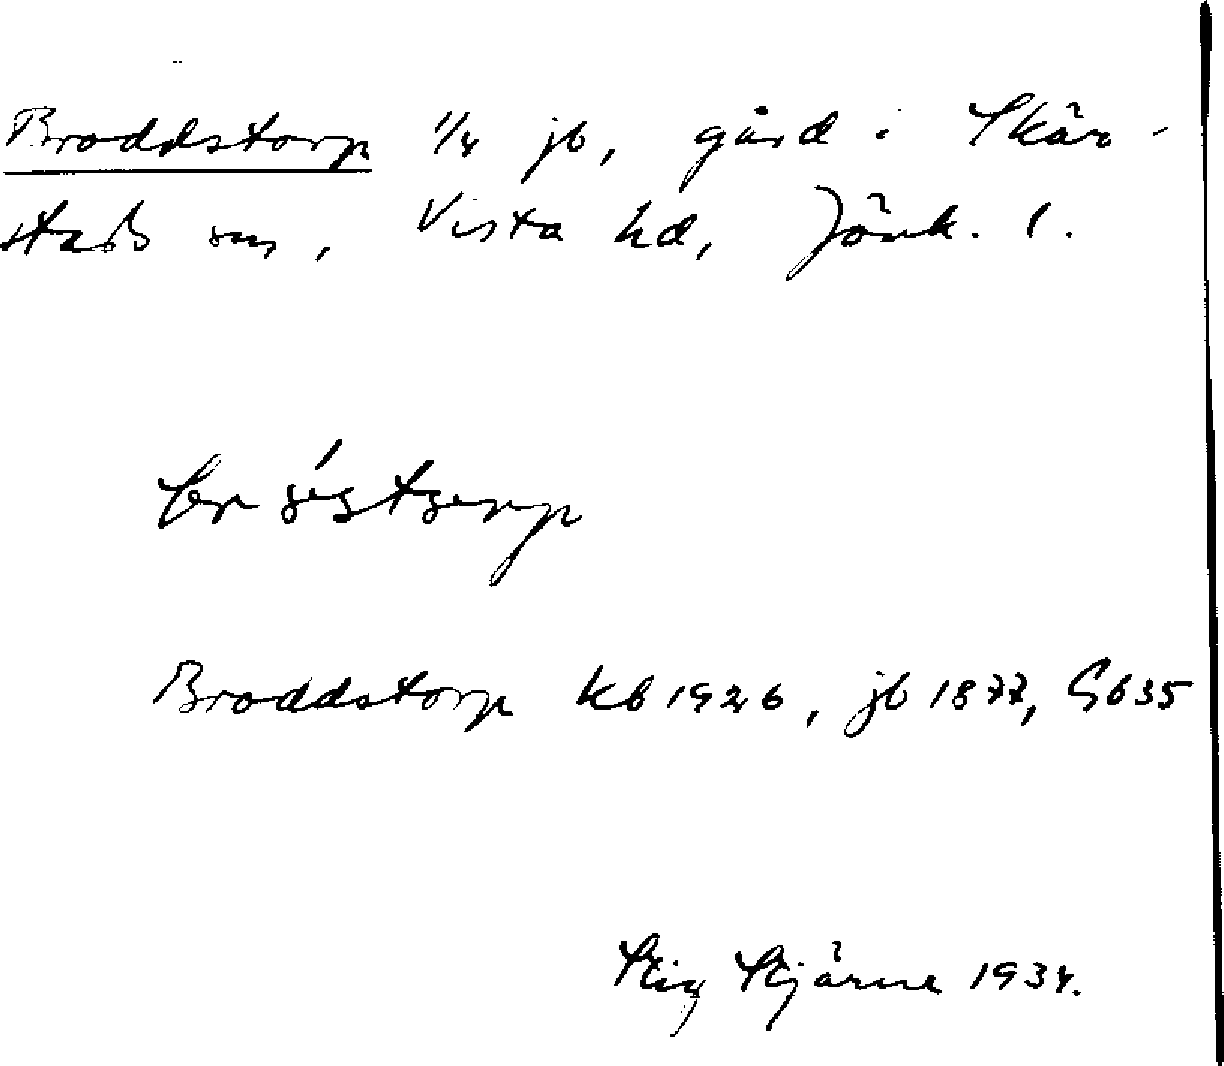 Broddstorp 1/4 jb, gård i Skär-
stads sn, Vista hd, Jönk. l.
Broddstorp kb 1926, jb 1877, Gb35
Stig Stjärne 1934.